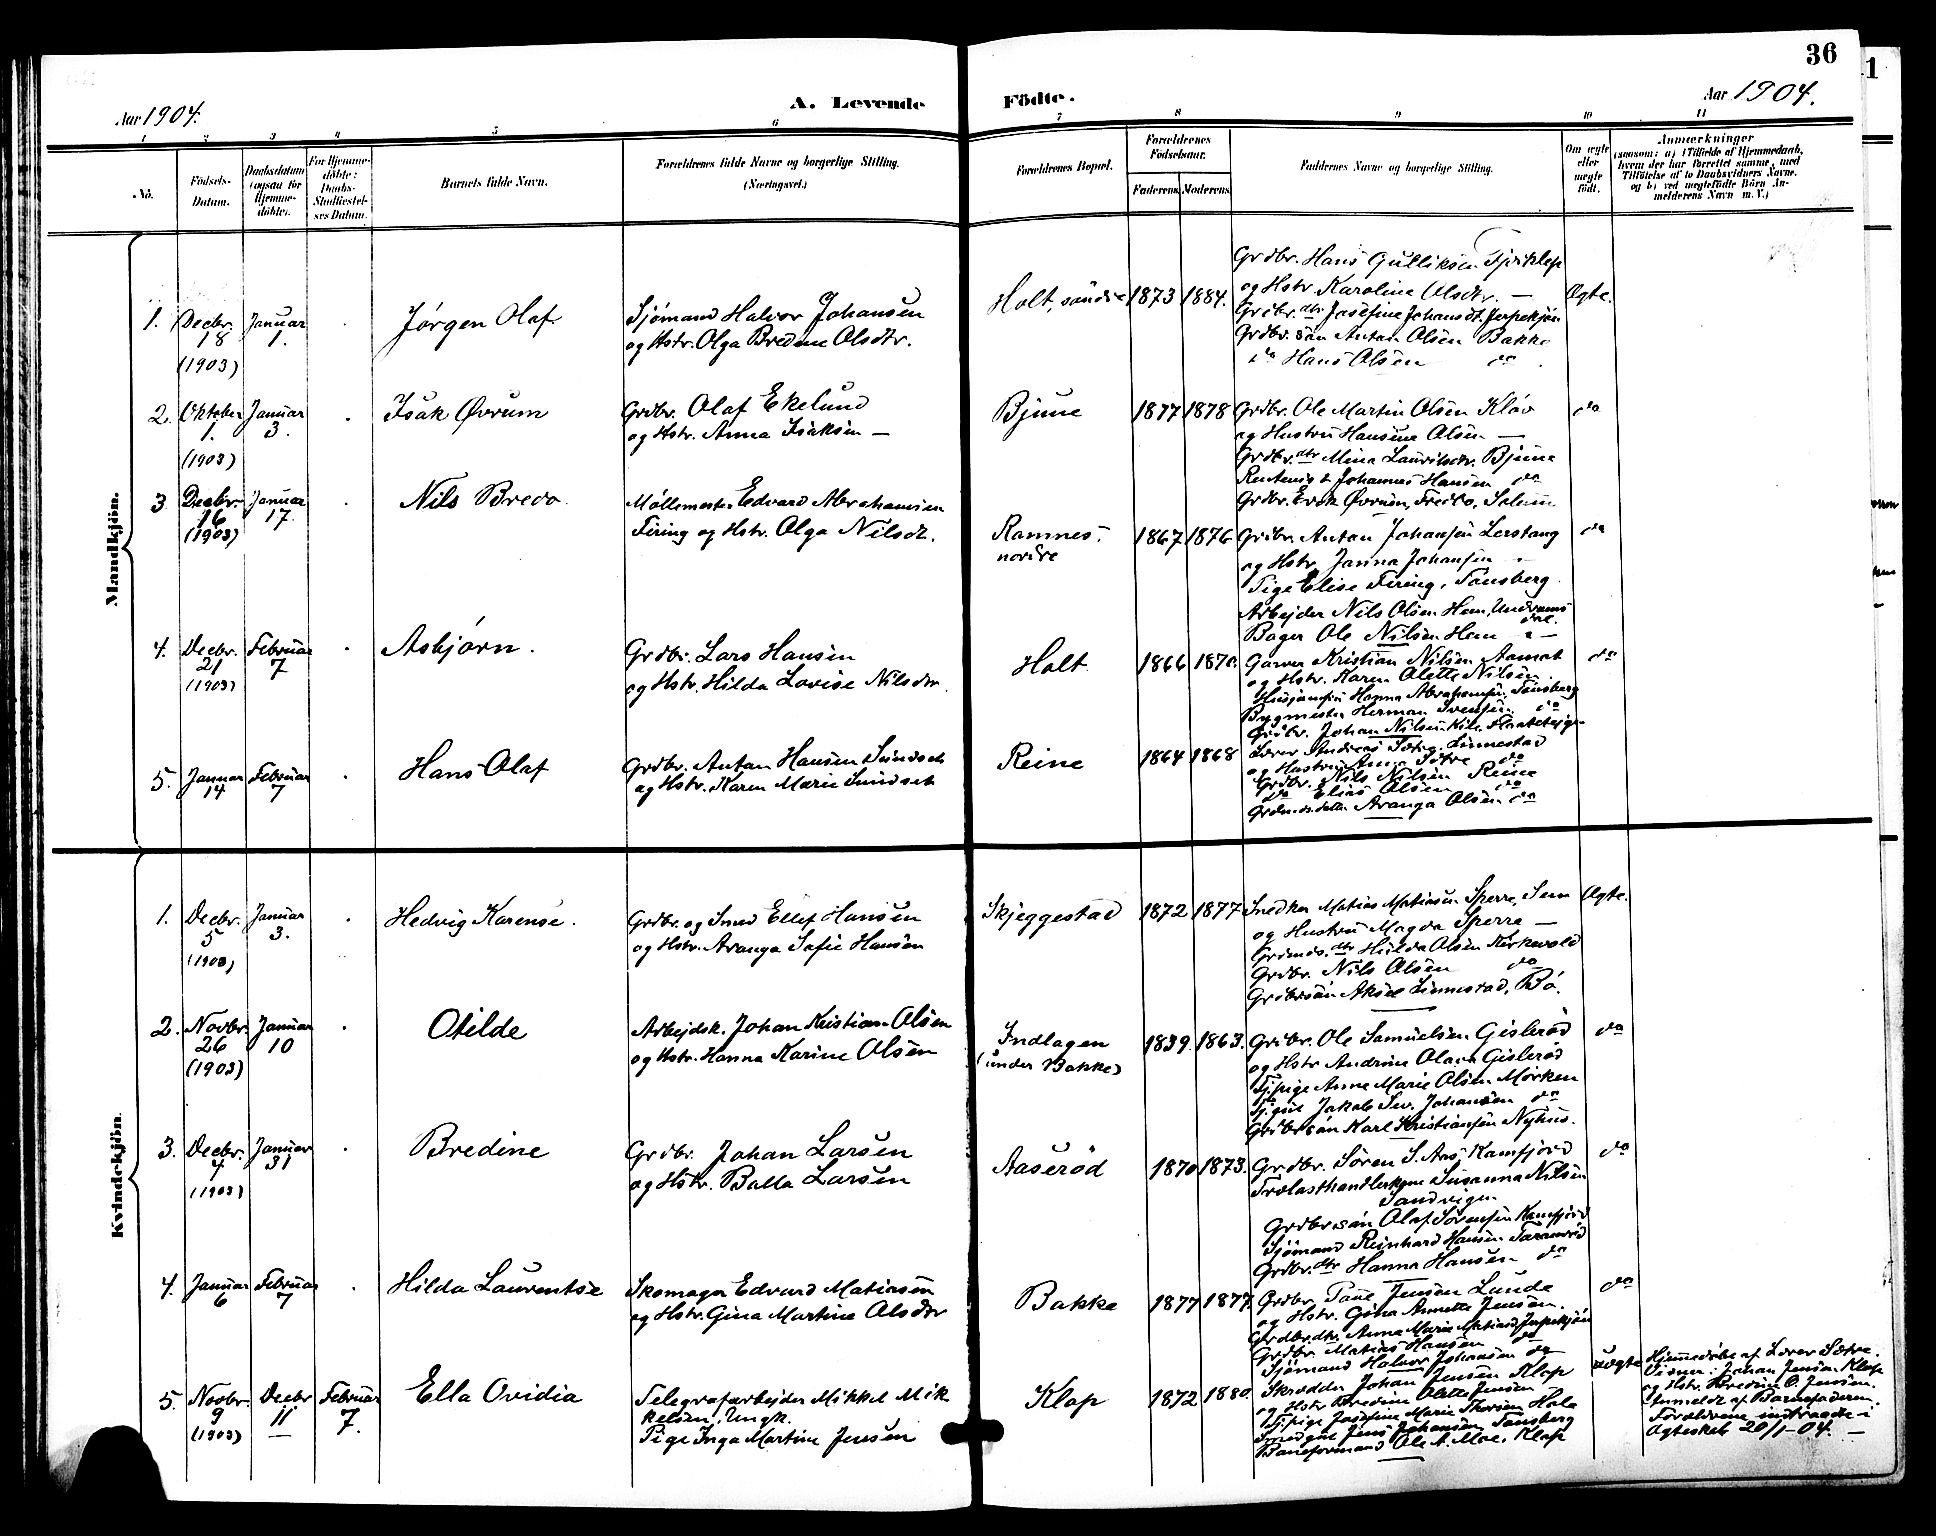 36
Aar 1904.
A. Levende Födte.
Aar 1904.
1 2 3 4 5 6 7 8 9 10 11
No.
Födsels-Datum.
Daabsdatum (ogsaa for Hjemmedöbte).
For Hjemmedöbte: Daabs-Stadfæstelses Datum.
Barnets fulde Navn.
Forældrenes fulde Navne og borgerlige Stilling.
(Næringsvei.)
Forældrenes Bopæl.
Forældrenes Födselsaar.
Faderens. Moderens.
Faddernes Navne og borgerlige Stilling.
Om ægte eller uægte født.
Anmærkninger
(saasom: a) i Tilfælde af Hjemmedaab,
hvem der har forrettet samme, med
Tilføielse af to Daabsvidners Navne,
og b) ved uægtefödte Börn Anmelderens Navn m. V.)
Mandkjön.
1. Decbr. 18 (1903) Januar 1. Jørgen Olaf.
Sjømand Halvor Johansen
og Hstr. Olga Bredine Olsdtr.
Holt, søndre 1873 1884.
Grdbr. Hans Gulliksen
og Hstr Karoline Olsdtr. —
Grdbr. dtr. Josefine Johansdt. Jerpekjøn
Grdbr. søn Anton Olsen Bakke
do Hans Olsen do
Ægte.
2. Oktober 1. (1903) Januar 3. Isak Øvrum
Grdbr. Olaf Ekelund
og Hstr. Anna Isaksen —
Bjune 1877 1878
Grdbr. Ole Martin Olsen Kløv
og Hustru Hansine Olsen —
Grdbr. dtr Mina Lauritsdtr. Bjune
Johannes Hansen do
Grdbr. Øvrum, Solum
do
3 Decbr. 16 (1903) Januar 17. Nils Bredo.
Møllemester Edvard Abrahamsen
Firing og Hstr. Olga Nilsdt.
Ramnes, nordre 1867 1876
Grdbr. Anton Johansen Lerstang
og Hstr. Janna Johansen —
Pige Elise Firing, Tønsberg.
Arbejder Nils Olsen Hem, Undrumsdal.
Bager Ole Nilsen Hem —
do
4. Decbr. 21 (1903) Februar 7 Asbjørn.
Grdbr. Lars Hansen
og Hstr. Hilda Lovise Nilsdtr.
Holt 1866 1870.
Garver Kristian Nilsen Aamot
og Hstr. Karen Olette Nilsen.
Husjomfru Hanna Abrahamsen, Tønsberg
Bygmester Herman Svensen, do
Grdbr. Johan Nilsen Kile,
do
5. Januar 14 Februar 7 Hans Olaf
Grdbr. Anton Hansen Sundset
og Hstr. Karen Marie Sundset
Reine 1864 1868
Lærer Andreas Sætre, Linnestad
og Hustru Anna Sætre do
Grdbr. Nils Nilsen Reine
do Elias Olsen do
Aranga Olsen do
Kvindekjön.
1. Decbr. 5 (1903) Januar 3. Hedvig Karense.
Grdbr. og Smed Ellef Hansen
og Hstr. Aranga Sofie Hansen
Skjeggestad 1872 1877
Snedker Matias Matiasen Sperre, Sem
og Hustru Magda Sperre —
dtr Hilda Olsen Kirkevold
Grdbr. Nils Olsen do
Grdbrsøn Aksel Linnestad, Bø.
Ægte.
2. Novbr. 26 (1903) Januar 10 Otilde
Arbejdsk. Johan Kristian Olsen
og Hstr. Hanna Karine Olsen
Indlagen (under Bakke) 1839. 1863.
Grdbr. Ole Samuelsen Gislerød
og Hstr Andrine Olava Gislerød
Tj.pige Anne Marie Olsen Mørken
Tj.gut Jakob Johansen do
Grdbrsøn Karl Kristiansen Nyhus.
do
3. Decbr. 4 (1903) Januar 31 Bredine
Grdbr. Johan Larsen
og Hstr. Balla Larsen
Aaserød 1870 1873.
Grdbr. Søren S. Aas, Kamfjord
Trælasthandlerkone Susanna Nilsen
Sandvigen
Grdbrsøn Olaf Sørensen Kamfjord
Sjømand Reinhard Hansen Taramrød
Grdbr. dtr Hanna Hansen do
do
4. Januar 6 Februar 7 Hilda Laurentse
Skomager Edvard Matiasen
og Hstr. Gina Martine Olsdtr
Bakke 1877 1877.
Grdbr. Jensen Lunde
og Hstr. Gina Annette Jensen.
Grdbr. dtr. Anna Marie Jerpekjøn
Grdbr. Matias Hansen do
Sjømand Halvor Johansen do
do
5. Novbr. 9 (1903) Decbr 11 Februar 7. Ella Ovidia
Telegrafarbejder Mikkel Mikkelsen, Ungk.
Pige Inga Martine Jensen
Klop 1872 1880
Skrædder Johan Jensen Klop
og Hstr Bredine Olette Jensen
Tj.pige Josefine Marie Hola
Smedgut Jens Johansen, Tønsberg
Baneformand Ole A. Moe, Klop
uægte
Hjemmedøbt af Lærer Sætre.
Johan Jensen Klop
og Hstr. Bredine O. Jensen.
Anmeldt af Barnefaderen.
Forældrene indtraadte i
Ægteskab 20/1-04. —